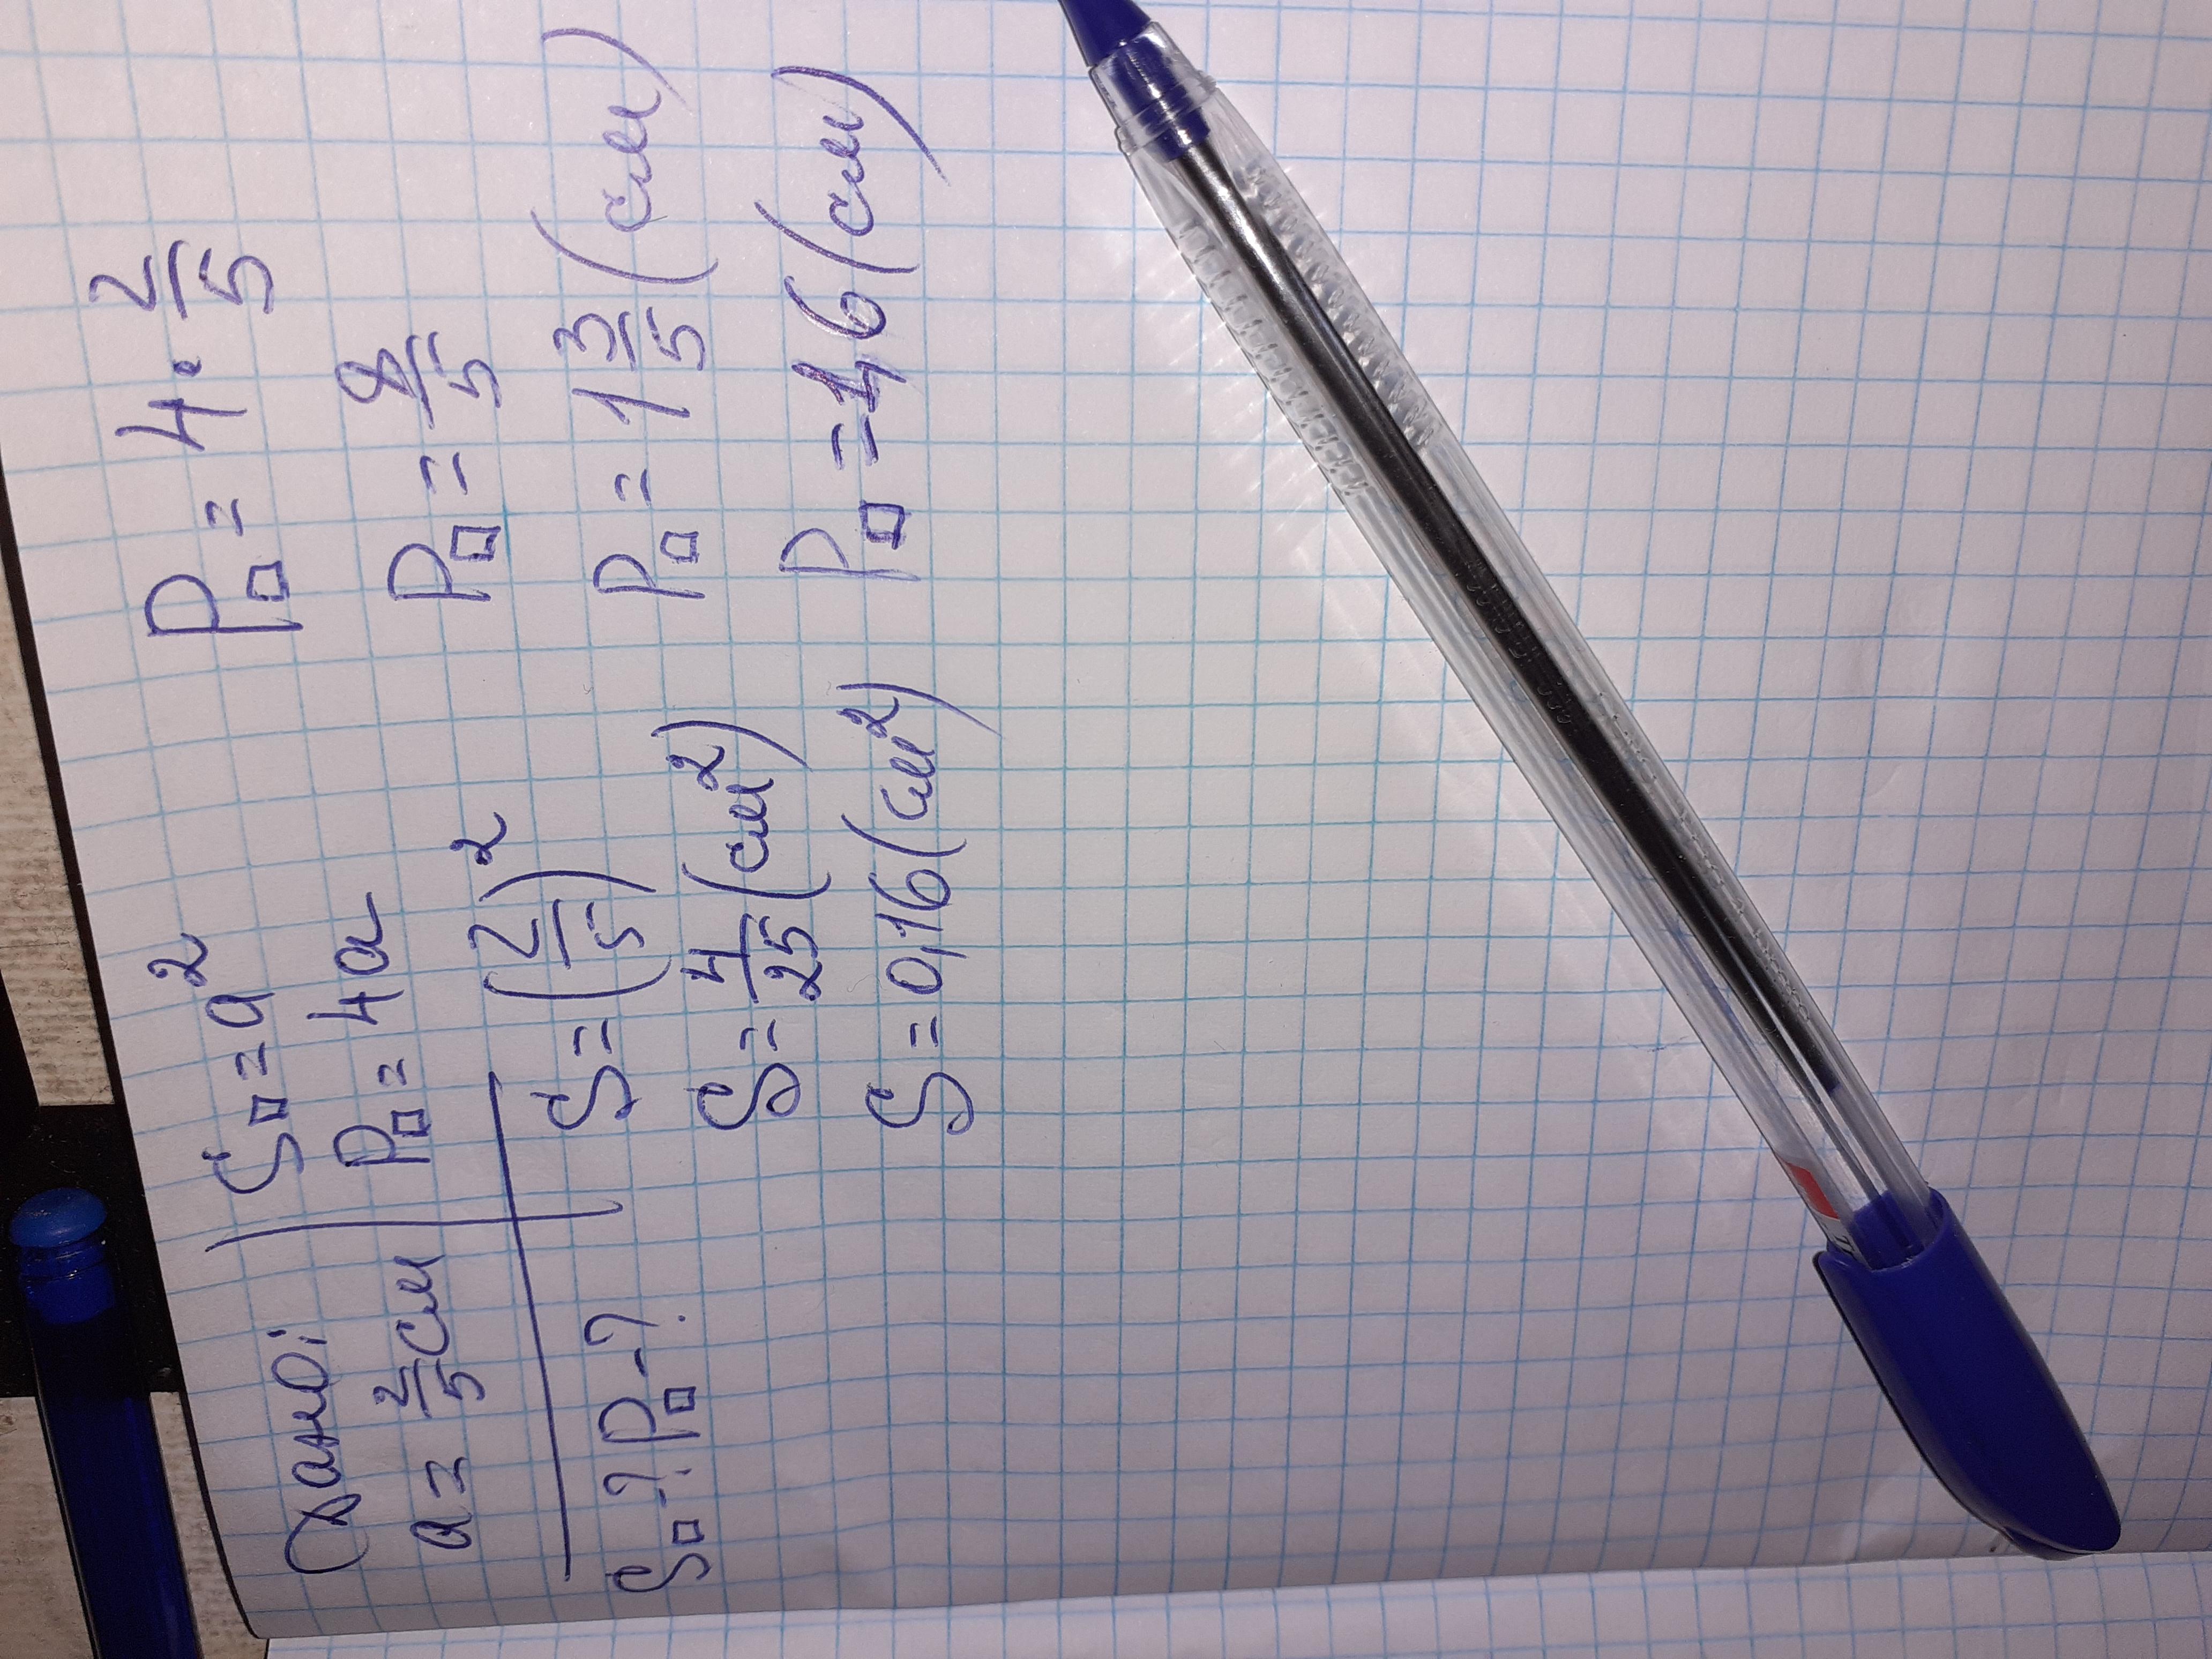 Дано:
a = 2/5 см
S□-? P□-?
S□ = a²
P□ = 4a
S = (2/5)²
S = 4/25 (см²)
S = 0,16 (см²)
P□ = 4 · 2/5
P□ = 8/5
P□ = 1 3/5 (см)
P□ = 1,6 (см)